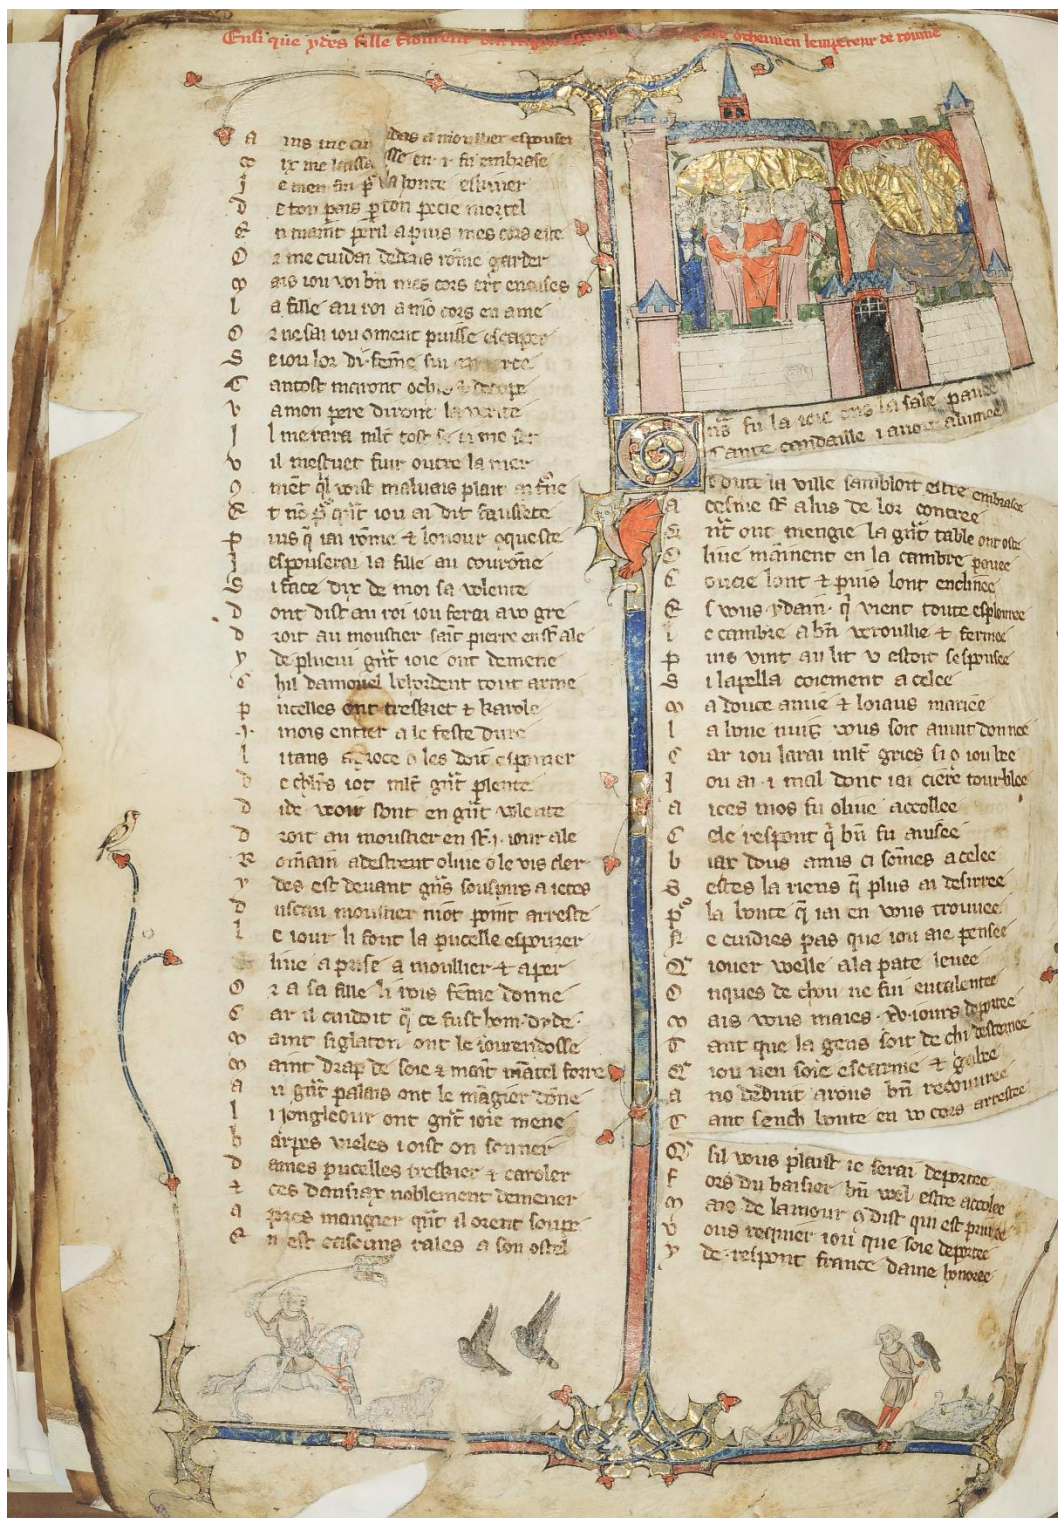 Ensi que ydes fille florent ochevien lempereur de romme
A ins me cui das a moullier espouser
ix me laissa sse en i fu embrase
J e men fui pr sa honte eskiver
D e ton pais pr ton pecie mortel
E n maint peril a puis mes cors este
O r me cuidai dedens rome garder
M ais iou voi bn mes cors ert encuses
L a fille au roi a mo cors en ame
O r ne sai iou oment puisse escaper
S e iou lor di feme sui
T antost maront ochis & decope
V a mon pere diront la verite
I l merara mlt tost
V il mestuet fuir outre la mer
9 ment ql voist malvais plait ai
E t no pr qnt iou ai dit faussete
P uis q iai rome & lonour oqueste
J espouserai la fille au courone
S i face dix de moi sa volente
D ont dist au roi iou ferai a vo gre
D roit au moustier saint pierre en st ale
Y de plevi gnt ioie ont demene
C hil damoisel behordent tout arme
P ucelles ont treskiet & karole
.i. mois entier a le feste dure
L i tans aproce o les doit espouser
D e chlrs iot mlt gnt plente
D ide veoir sont en gnt volente
D roit au moustier en st .i. iour ale
R omain adestrent olive o le vis cler
Y des est devant gns souspirs a ietes
D usc au moustier niot point arreste
L e iour li font la pucelle espouzer
live a prise a moullier & a per
O r a sa fille li rois feme donne
C ar il cuidoit q ce fust hom dyde
M aint siglaton ont le iour endosse
M aint drap de soie & maint matel forre
A u gnt palais ont le mangier done
L i iongleour ont gnt ioie mene
H arpes vieles i oist on sonner
D ames pucelles treskier & caroler
& ces dansiax noblement demener
A pres mangier qnt il orent soupe
E n est cascuns rales a son ostel
ns fu la ioie ens la sale pavee
Tante candaille i avoit alumee
e toute la ville sambloit estre embrasee
A cesme st alius de lor contree
Q nt ont mengie la gnt table ont oste
O live mainnent en la cambre pavee
C oucie lont & puis lont enclinee
E s vous ydain q vient toute esploree
L e cambre a bn veroullie & fermee
P uis vint au lit u estoit sespousee
S i lapella coiement a celee
M a douce amie & loiaus mariee
L a boine nuis vous soit anuit donnee
C ar iou larai mlt gries si 9 iou bee
I ou ai i mal dont iai ciere tourblee
A ices mos fu olive accollee
C ele respont q bn fu avisee
B iax dous amis ci somes a celee
S estes la riens q plus ai desirree
P o la bonte q iai en vous trouvee
N e cuidies pas que iou aie pensee
Q iouer voelle a la pate levee
O nques de chou ne fui entalentee
M ais vous maies .xv. iours deportee
T ant que la gens soit de chi desevree
Q iou nen soie escarnie & gabee
A no dedvit avons bn recouvree
T ant senc bonte en vo cors arrestee
Q sil vous plaist ie serai deportee
F ors du baisier bn voel estre accolee
M ais de lamour 9 dist qui est privee
V ous requier iou que soie deportee
Y de respont france dame honoree